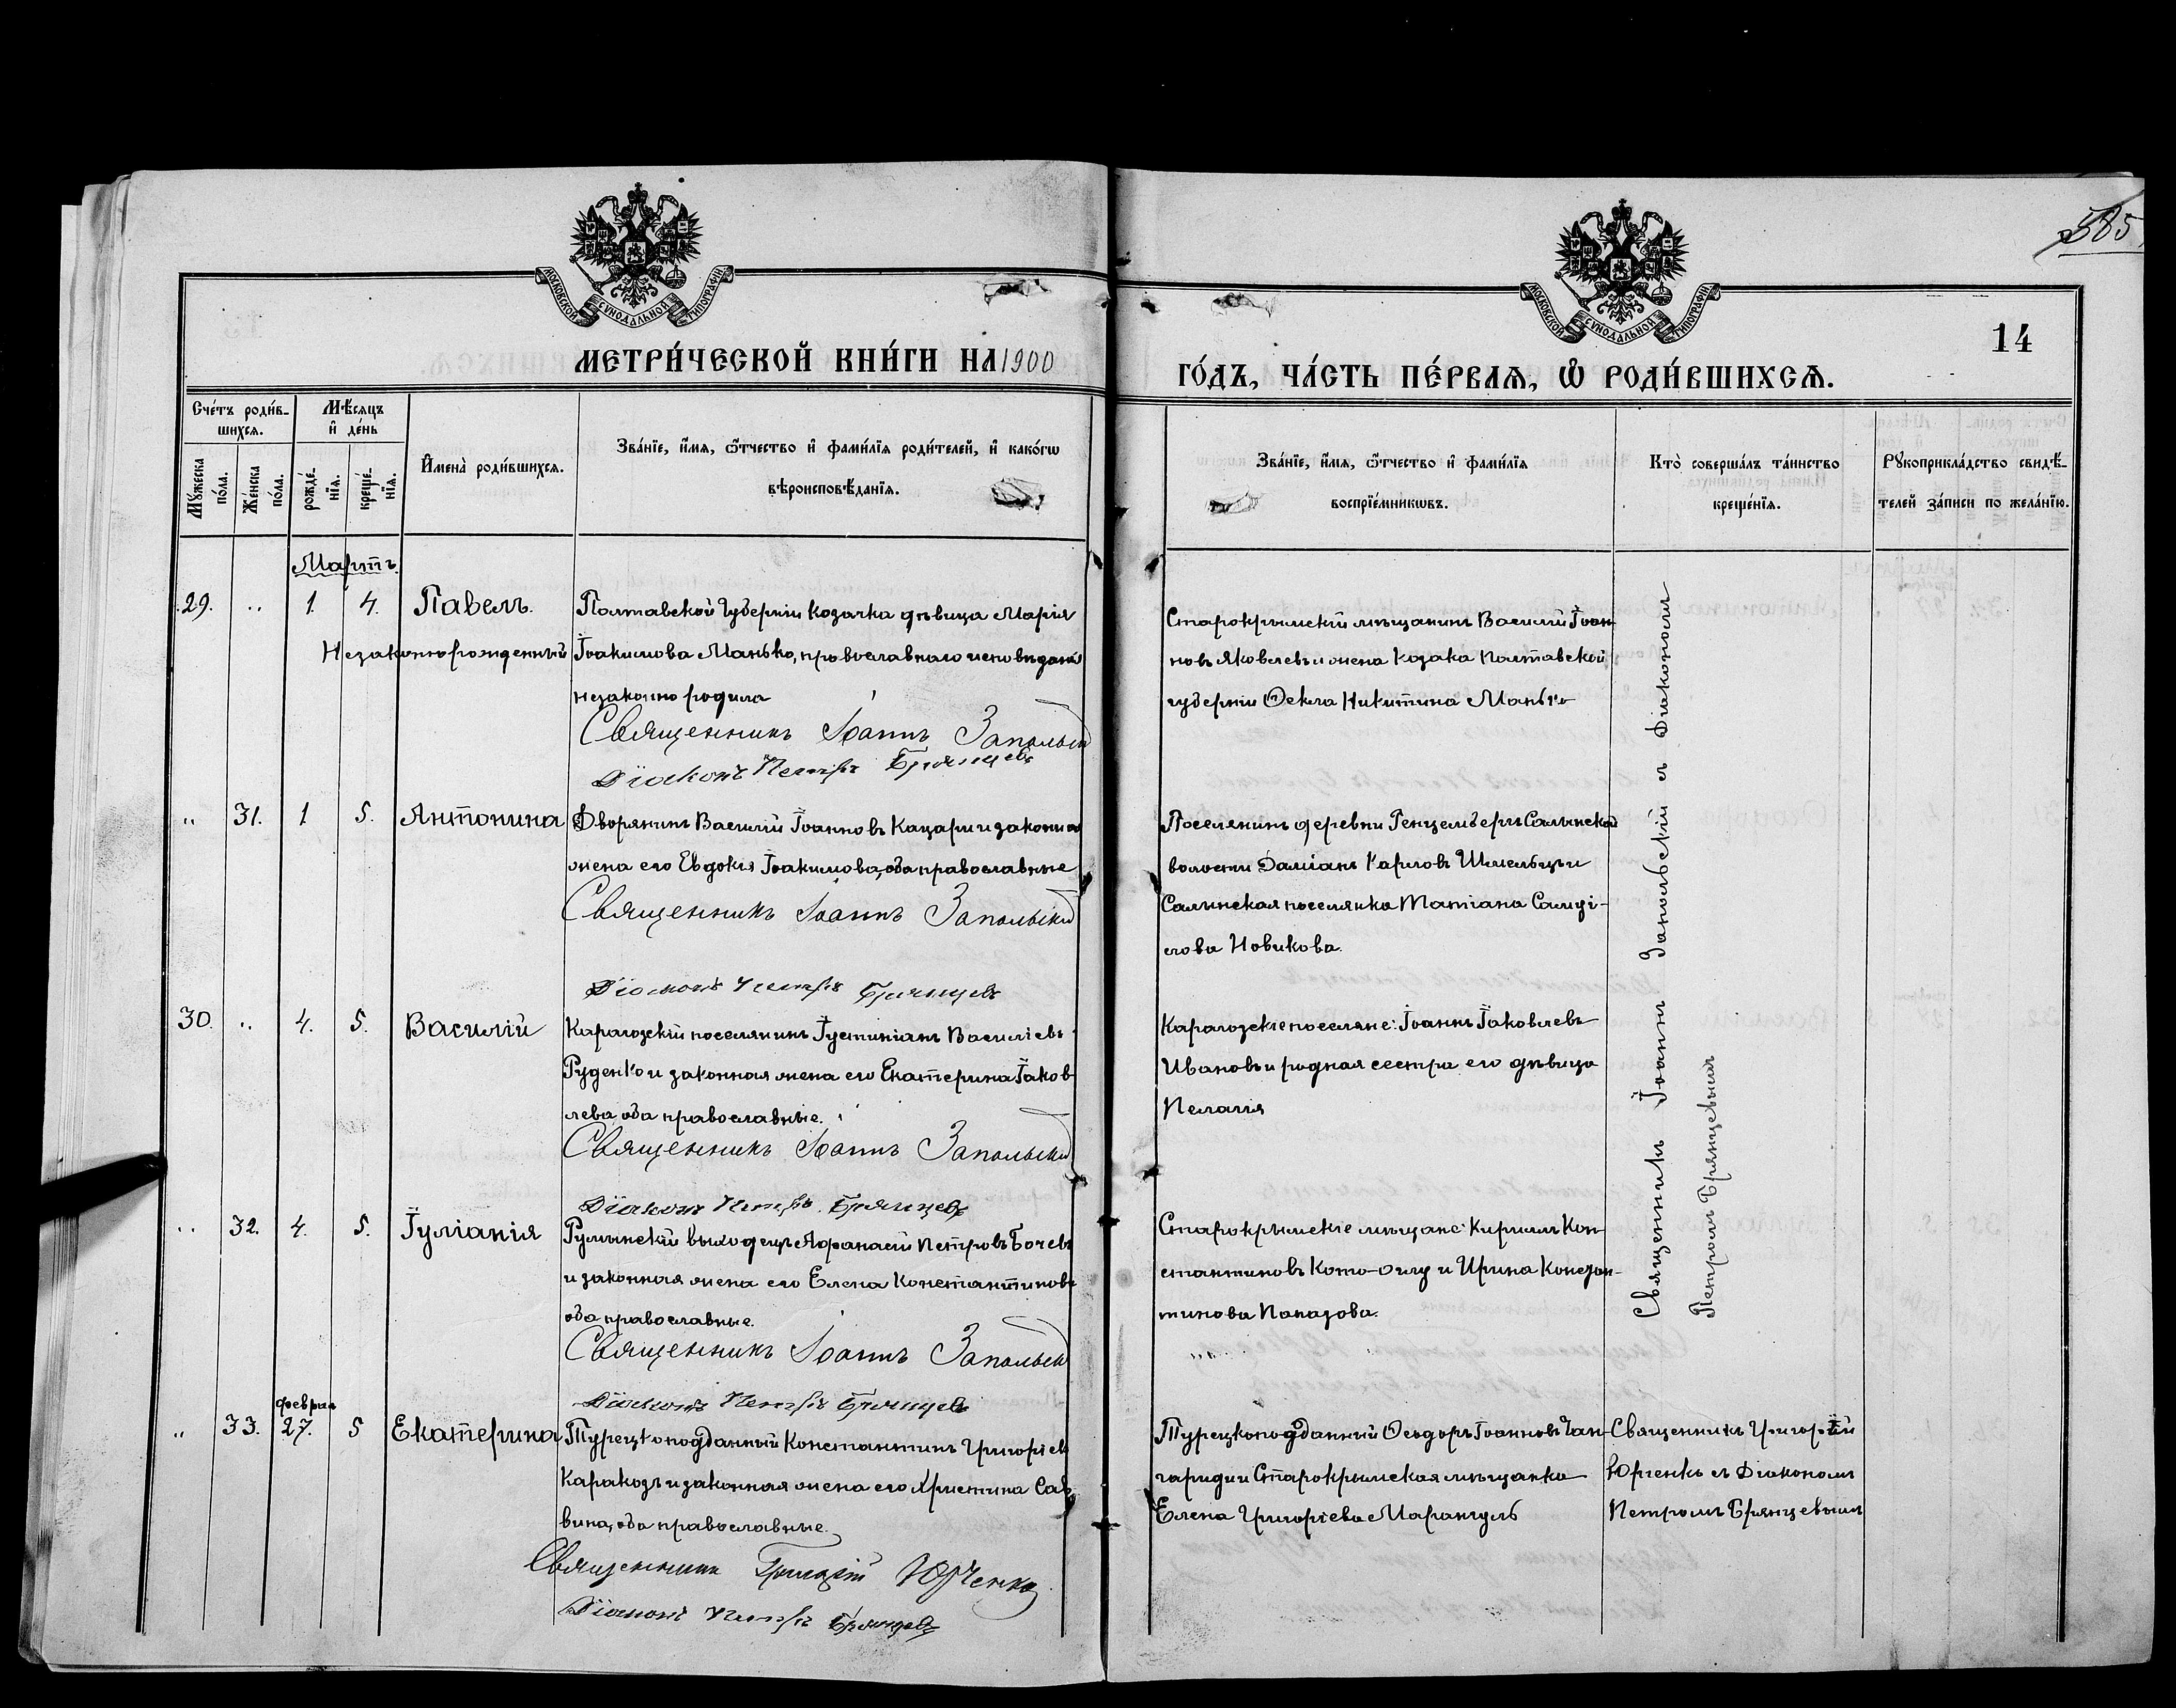 585
МОСКОВСКОЙ СѴНОДАЛЬНОЙ ТИПОГРАФІИ
МОСКОВСКОЙ СѴНОДАЛЬНОЙ ТИПОГРАФІИ
14
МЕТРИ́ЧЕСКОЙ КНИ́ГИ НА 1900
ГО́ДЪ, ЧА́СТЬ ПЕ́РВАѦ, Ѡ РОДИ́ВШИХСѦ.
Сче́тъ роди́в-
шихсѧ.
Мꙋжеска
по́ла.
Же́нска
по́ла.
Мѣ́сѧцъ
и҆ де́нь
рожде́-
нїѧ.
креще́-
нїѧ.
И҆мена̀ роди́вшихсѧ.
Зва́нїе, и҆́мѧ, ѻ҆́тчество и҆ фами́лїѧ роди́телей, и҆ како́гѡ
вѣроисповѣ́данїѧ.
Зва́нїе, и҆́мѧ, ѻ҆́тчество и҆ фами́лїѧ
воспрїе́мникѡвъ.
Кто̀ соверша́лъ та́инство
креще́нїѧ.
Рꙋкоприкла́дство свидѣ́-
телей за́писи по жела́нїю.
Мартъ.
29. „ 1. 4. Павелъ.
Незаконнорожденный
Полтавской Губерніи козачка дѣвица Марія
Іоакимова Манько, православнаго исповѣданія
незаконно родила
Священникъ Іоаннъ Запольскій
Діаконъ Петръ Брянцевъ
Старокрымскій мѣщанинъ Василій Іоан-
новъ Яковлевъ и жена козака Полтавской
губерніи Ѳекла Никитина Манько
Священникъ Іоаннъ Запольскій съ Діакономъ
Петромъ Брянцевымъ
„ 31. 1 5. Антонина
Дворянинъ Василій Іоанновъ Кацари и законная
жена его Евдокія Іоакимова, оба православные
Священникъ Іоаннъ Запольскій
Діаконъ Петръ Брянцевъ
Поселянинъ деревни Салынской
волости Даміанъ Карповъ и
Салынская поселянка Татіана
Новикова.
30. „ 4. 5. Василій
Карагозскій поселянинъ Іустиніанъ Василіевъ
Руденко и законная жена его Екатерина Іаков-
лева, оба православные.
Священникъ Іоаннъ Запольскій
Діаконъ Петръ Брянцевъ
Карагозскіе поселяне: Іоаннъ Іаковлевъ
Ивановъ и родная сестра его дѣвица
Пелагія
„ 32. 4. 5. Іуліанія
Румынскій выходецъ Аѳанасій Петровъ Бочевъ
и законная жена его Елена Константинова
оба православные.
Священникъ Іоаннъ Запольскій
Діаконъ Петръ Брянцевъ
Старокрымскіе мѣщане: Кириллъ Кон-
стантиновъ Кото-Оглу и Ирина Констан-
тинова Папазова.
„ 33. февраля 27. 5 Екатерина
Турецкоподданный Константинъ Григоріевъ
Каракозъ и законная жена его Христина Сав-
вина, оба православные.
Священникъ Григорій Юрченко
Діаконъ Петръ Брянцевъ
Турецкоподданный Ѳеодоръ Іоанновъ
и Старокрымская мѣщанка
Елена Григоріева Марангузъ
Священникъ Григорій
Юрченко съ Діакономъ
Петромъ Брянцевымъ